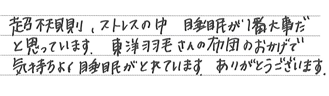 超不規則、ストレスの中 睡眠が1番大事だ
と思っています。東洋羽毛さんの布団のおかげで
気持ちよく睡眠がとれています。ありがとうございます。